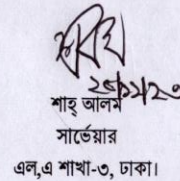 শাহ্ আলম
সার্ভেয়ার
এল,এ শাখা-৩, ঢাকা।